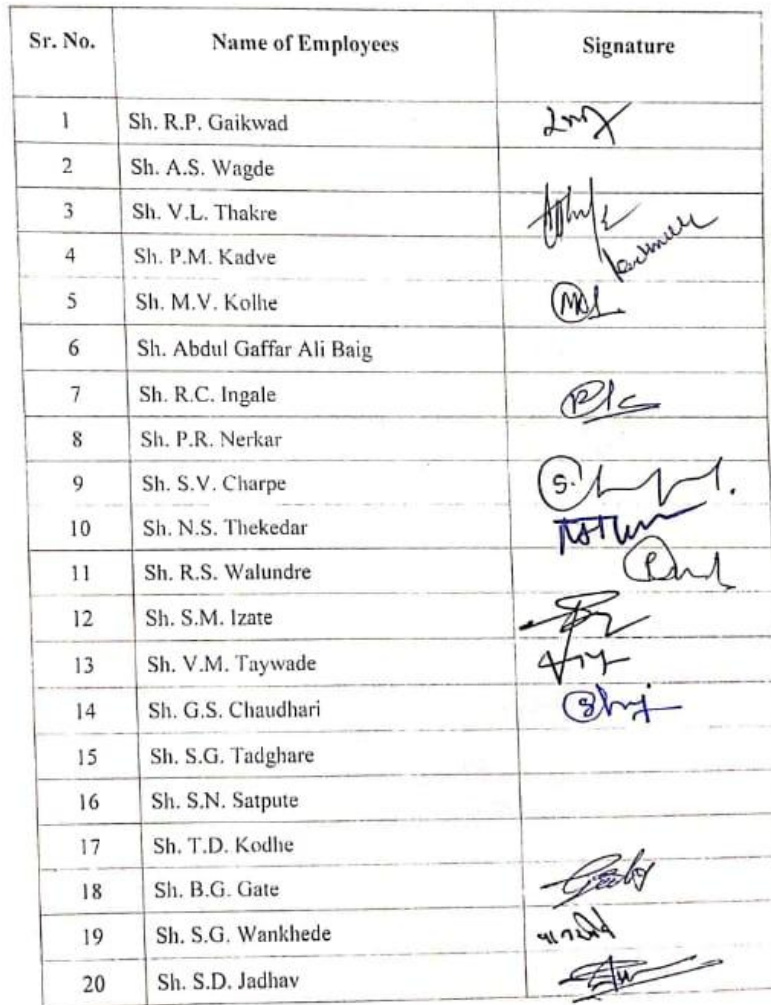 Sr. No. Name of Employees Signature
1 Sh. R.P. Gaikwad
2 Sh. A.S. Wagde
3 Sh. V.L. Thakre
4 Sh. P.M. Kadve
5 Sh. M.V. Kolhe
6 Sh. Abdul Gaffar Ali Baig
7 Sh. R.C. Ingale
8 Sh. P.R. Nerkar
9 Sh. S.V. Charpe
10 Sh. N.S. Thekedar
11 Sh. R.S. Walundre
12 Sh. S.M. Izate
13 Sh. V.M. Taywade
14 Sh. G.S. Chaudhari
15 Sh. S.G. Tadghare
16 Sh. S.N. Satpute
17 Sh. T.D. Kodhe
18 Sh. B.G. Gate
19 Sh. S.G. Wankhede
20 Sh. S.D. Jadhav